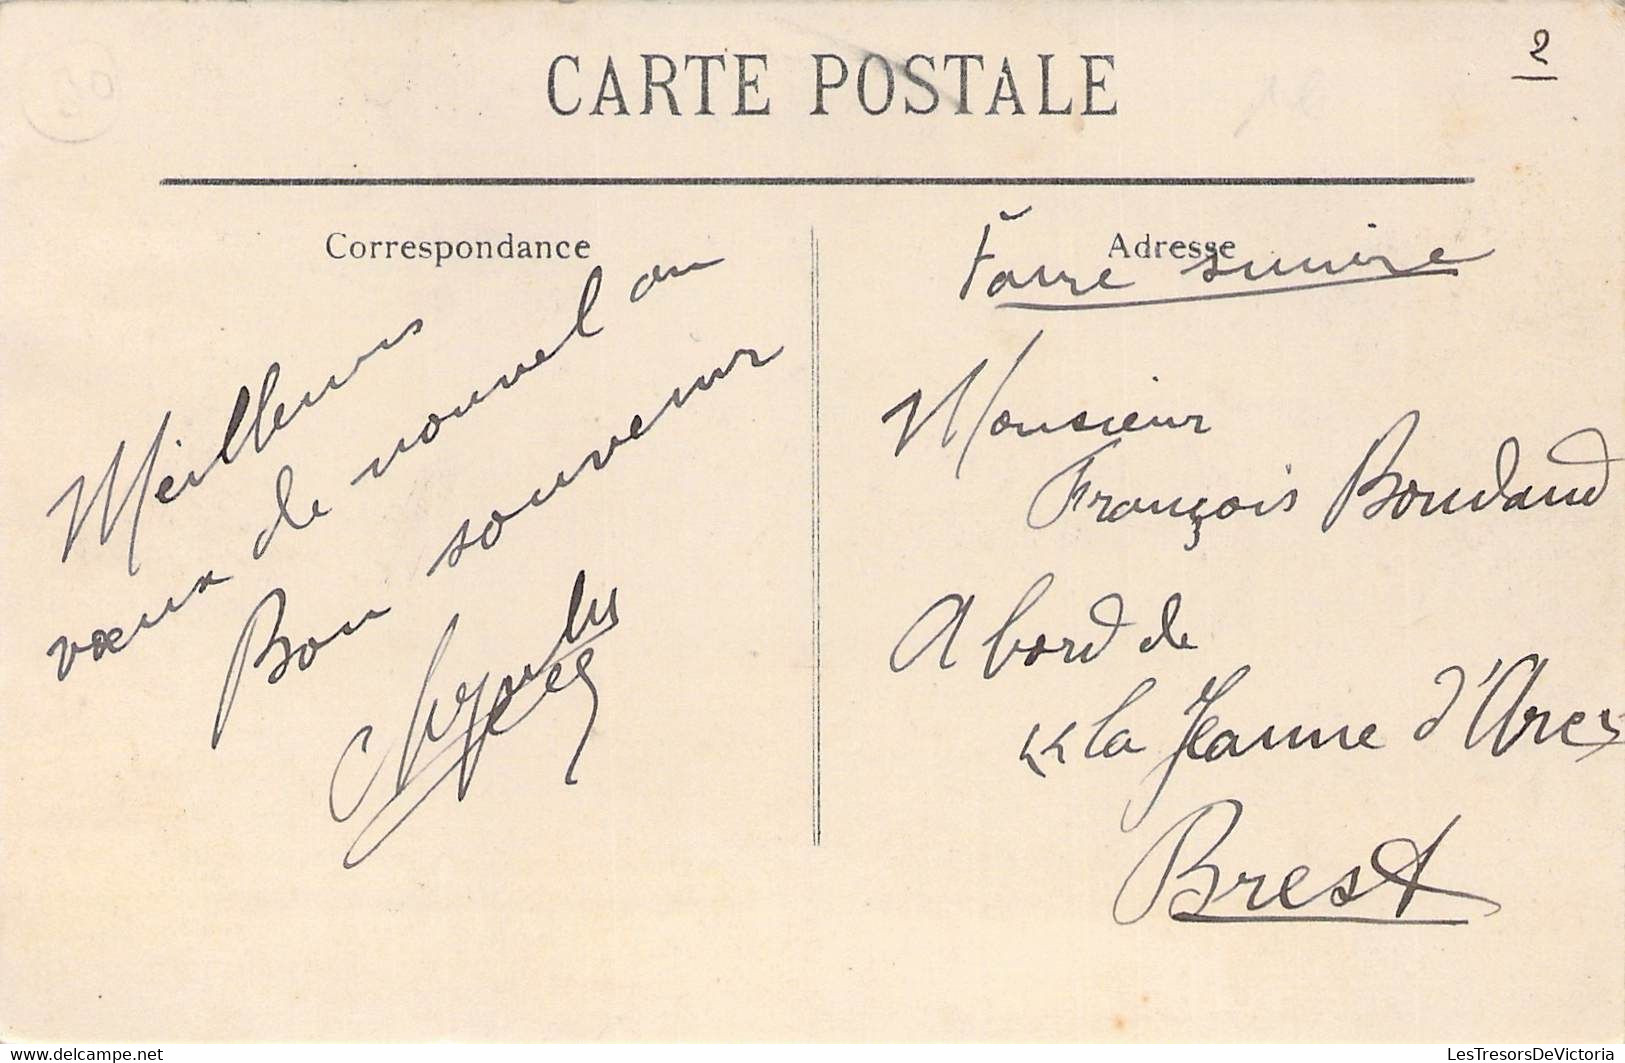 2
CARTE POSTALE
Correspondance
Meilleurs
vœux de nouvel an
Bon souvenir
Adresse
Faire suivre
Monsieur
François Boudaud
A bord de
"la Jeanne d'Arc"
Brest
LesTresorsDeVictoria
https://www.delcampe.net